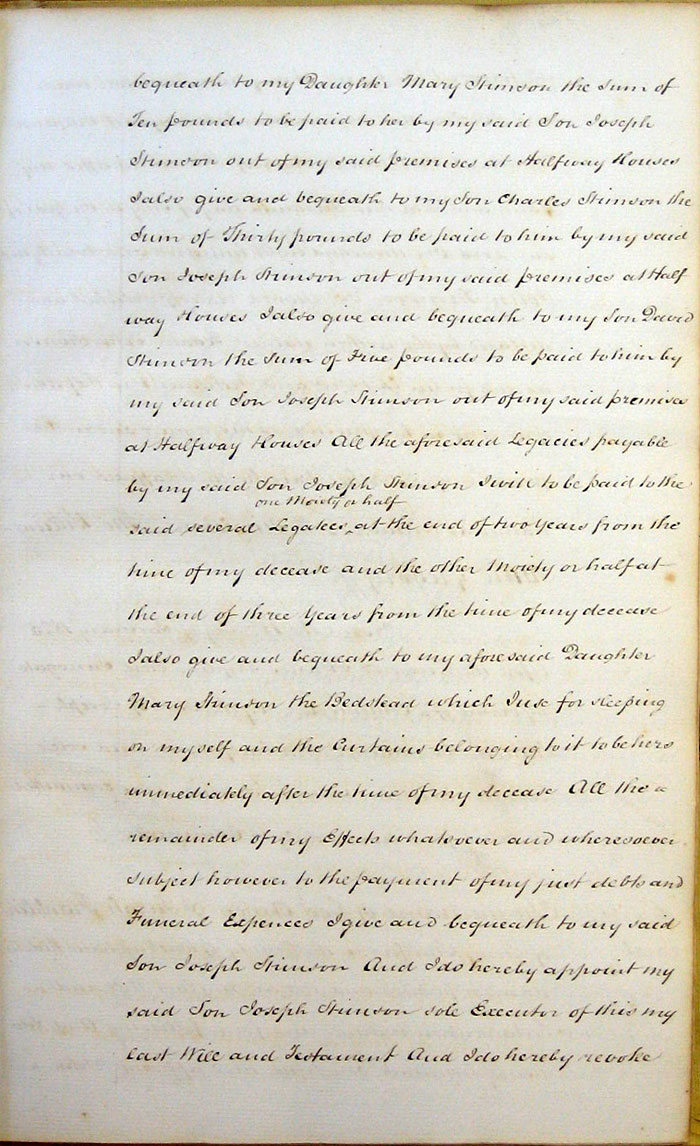 bequeath to my Daughter Mary Stimson the Sum of
Ten pounds to be paid to her by my said Son Joseph
Stimson out of my said premises at Halfway Houses
I also give and bequeath to my Son Charles Stimson the
Sum of Thirty pounds to be paid to him by my said
Son Joseph Stimson out of my said premises at Half
way Houses I also give and bequeath to my Son David
Stimson the Sum of Five pounds to be paid to him by
my said Son Joseph Stimson out of my said premises
at Halfway Houses All the aforesaid Legacies payable
by my said Son Joseph Stimson I will to be paid to the
one Moiety or half
said several Legatees ‸ at the end of two Years from the
time of my decease and the other Moiety or half at
the end of three Years from the time of my decease
I also give and bequeath to my aforesaid Daughter
Mary Stimson the Bedstead which I use for sleeping
on myself and the Curtains belonging to it to be hers
immediately after the time of my decease All the
remainder of my Effects whatsoever and wheresoever
subject however to the payment of my just debts and
Funeral Expences I give and bequeath to my said
Son Joseph Stimson And I do hereby appoint my
said Son Joseph Stimson sole Executor of this my
Last Will and Testament And I do hereby revoke